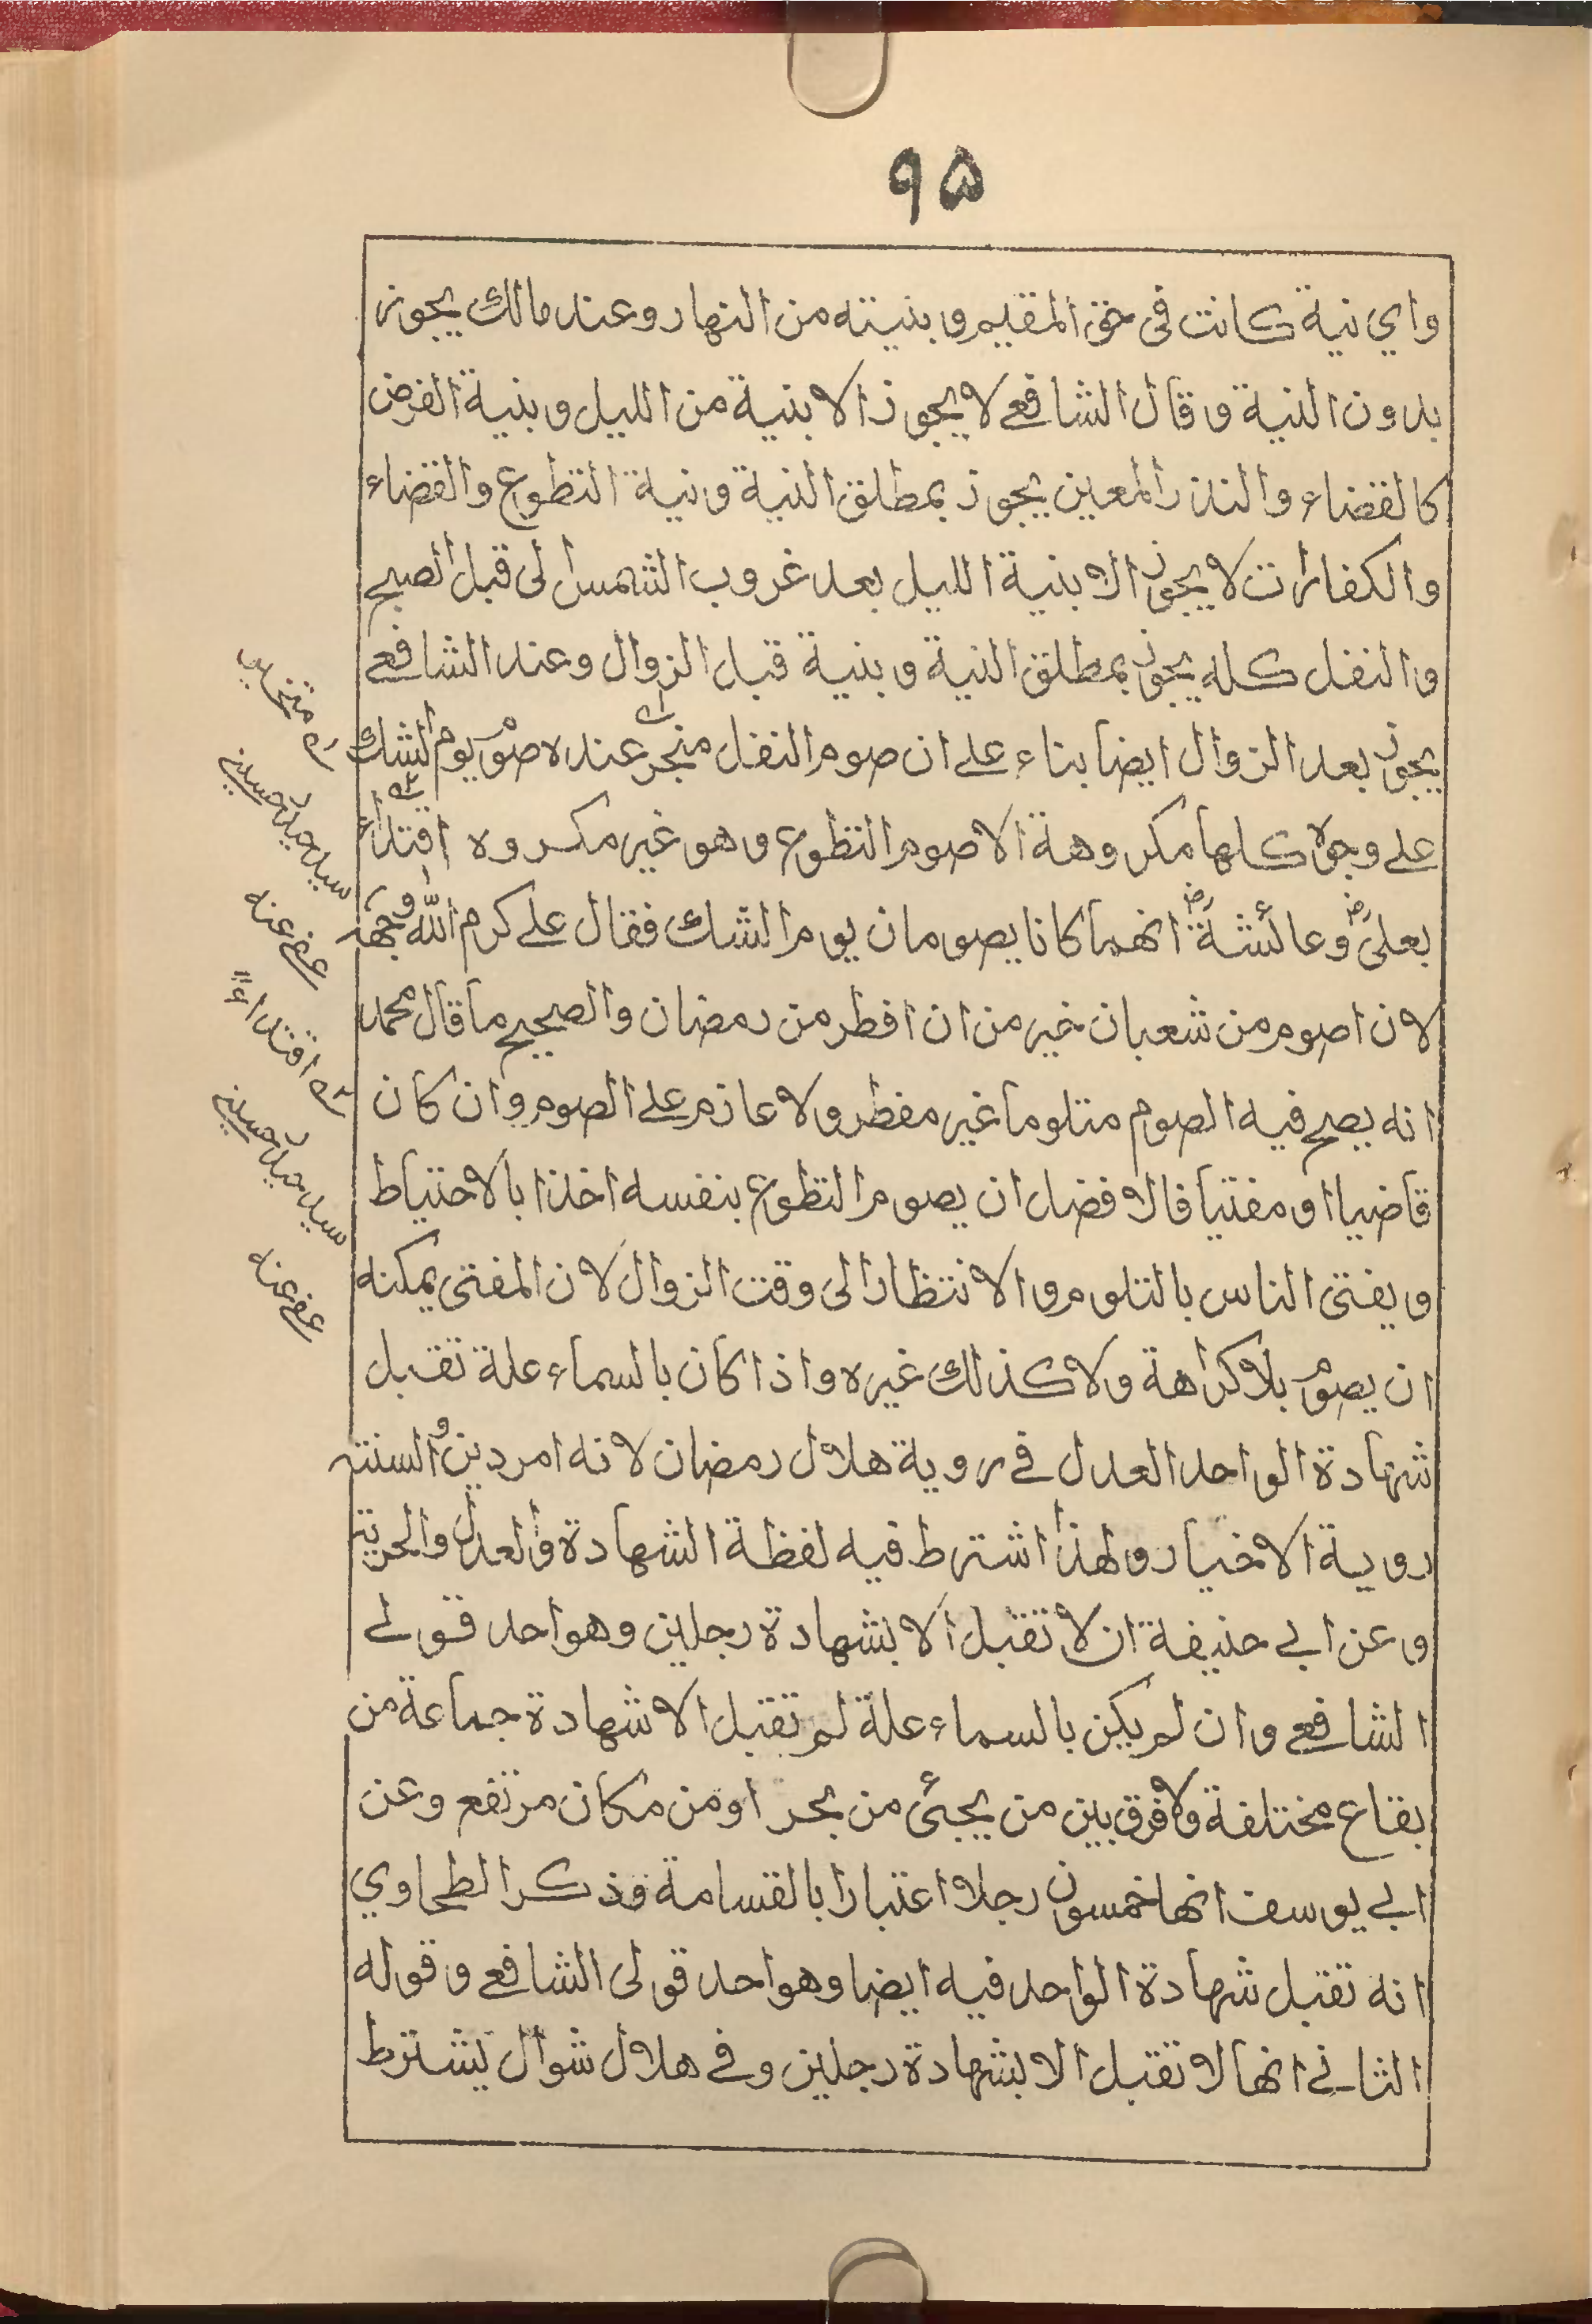 ٩٥
واي نية كانت في حق المقيم وبنيته من النهار وعند مالك يجوز
بدون النية وقال الشافعي لا يجوز الا بنية من الليل وبنية الفرض
كالقضاء والنذر المعين يجوز بمطلق النية ونية التطوع والقضاء
والكفارات لا يجوز الا بنية الليل بعد غروب الشمس الى قبل الصبح
والنفل كله يجوز بمطلق النية وبنية قبل الزوال وعند الشافعي
يجوز بعد الزوال ايضا بناء على ان صوم النفل منجز عنده صوم يوم الشك
على وجوه كلها مكروهة الا صوم التطوع وهو غير مكروه اقتداء
بعلي رض وعائشة رض انهما كانا يصومان يوم الشك فقال علي كرم الله وجهه
لان اصوم من شعبان خير من ان افطر من رمضان والصحيح ما قال محمد
انه يصح فيه الصوم متلوما غير مفطر ولا عازم على الصوم وان كان
قاضيا او مفتيا فالافضل ان يصوم التطوع بنفسه اخذا بالاحتياط
ويفتي الناس بالتلوم والانتظار الى وقت الزوال لان المفتي يمكنه
ان يصوم بلا كراهة ولا كذلك غيره واذا كان بالسماء علة تقبل
شهادة الواحد العدل في روية هلال رمضان لانه امر دين والسنته
روية الاخيار ولهذا اشترط فيه لفظة الشهادة والعدل والحرية
وعن ابي حنيفة ان لا تقبل الا بشهادة رجلين وهو احد قولي
الشافعي وان لم يكن بالسماء علة لم تقبل الا شهادة جماعة من
بقاع مختلفة ولا فرق بين من يجئ من بحر او من مكان مرتفع وعن
ابي يوسف انها خمسون رجلا اعتبارا بالقسامة وذكر الطحاوي
انه تقبل شهادة الواحد فيه ايضا وهو احد قولي الشافعي وقوله
الثاني انها لا تقبل الا بشهادة رجلين وفي هلال شوال يشترط
سيد حسيني
عفي عنه
اقتداء
سيد حسيني
عفي عنه